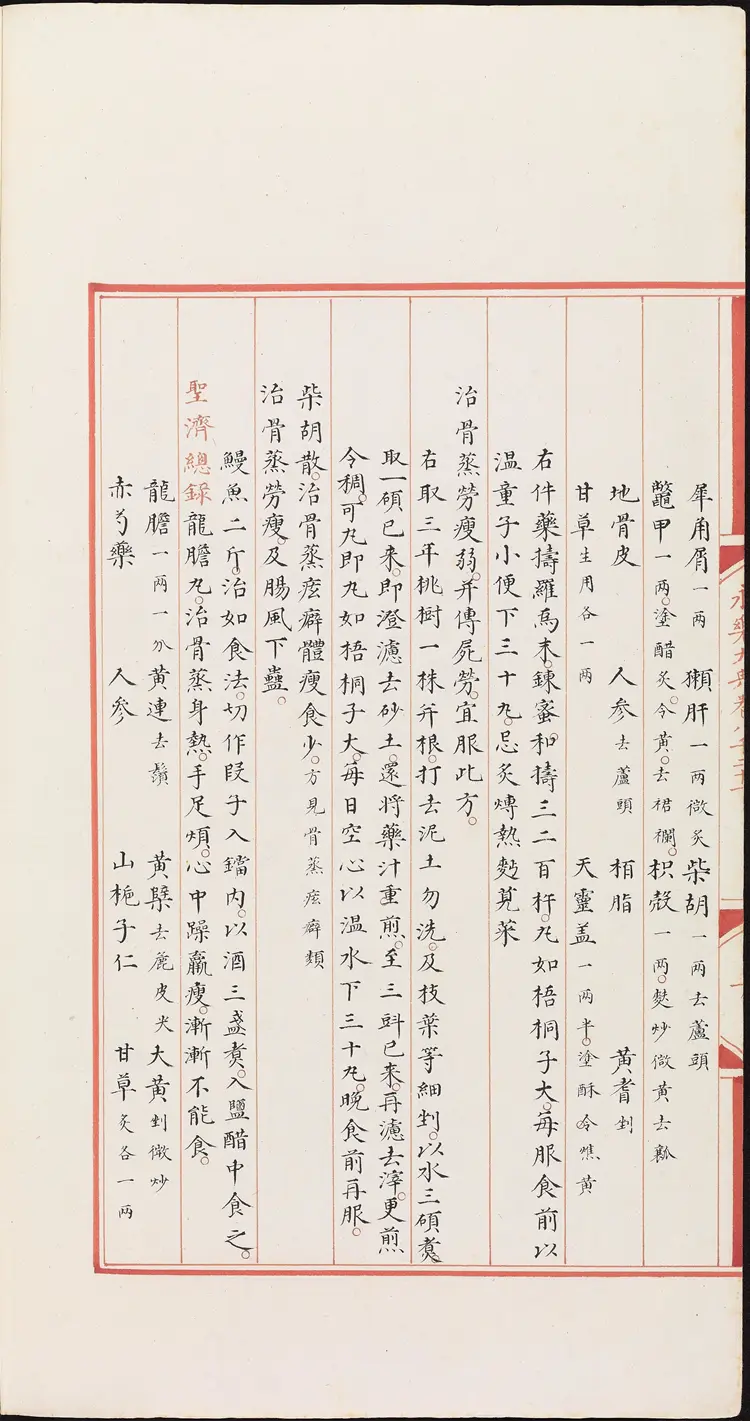 犀角屑一两 獺肝一两微炙 柴胡一两去蘆頭
鼈甲一两。塗醋炙。令黄。去裙襴。 枳殼一两。麩炒微黄去瓤
地骨皮 人參去蘆頭 栢脂 黄耆剉
甘草生用各一两 天靈盖一两半。塗酥令燋黄
右件藥擣羅爲末。鍊蜜。和擣三二百杵。丸如梧桐子大。每服食前以
温童子小便下三十丸。忌炙煿熱麪莧菜
治骨蒸勞瘦弱。并傳屍勞。宜服此方。
右取三年桃樹一株并根。打去泥土勿洗。及枝葉等細剉。以水三碩煑
取一碩已來。即澄濾去砂土。還將藥汁重煎。至三㪷已來。再濾去滓。更煎
令稠。可丸即丸如梧桐子大。每日空心以温水下三十丸。晚食前再服。
柴胡散。治骨蒸痃癖體瘦食少。方見骨蒸痃癖類
治骨蒸勞瘦。及腸風下蠱。
鰻魚二斤。治如食法。切作段子入鐺内。以酒三盞煑。入鹽醋中食之。
聖濟總錄龍膽丸。治骨蒸身熱。手足煩。心中躁羸瘦。漸漸不能食。
龍膽一两一分 黄連去鬚 黄蘗去麁皮炙 大黄剉微炒
赤芍藥 人參 山梔子仁 甘草炙各一两